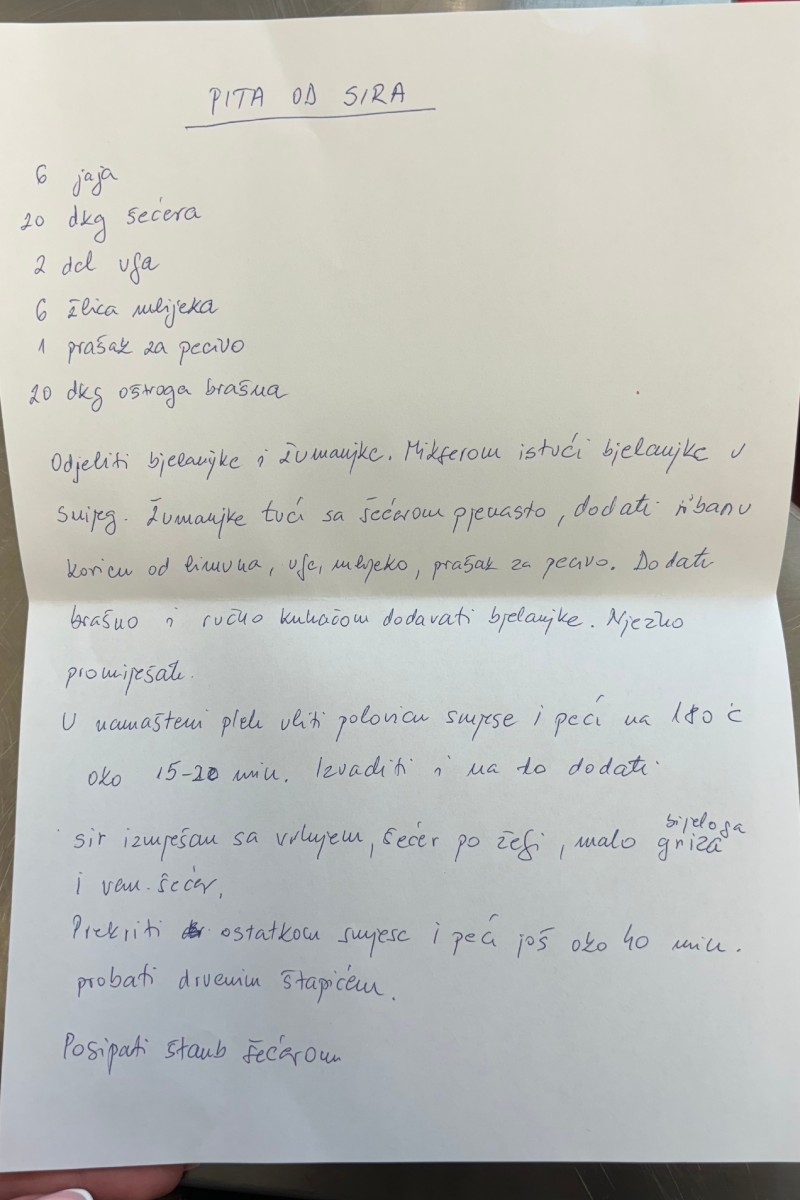 PITA OD SIRA
6 jaja
20 dkg šećera
2 dcl ulja
6 žlica mlijeka
1 prašak za pecivo
20 dkg oštroga brašna
Odjeliti bjelanjke i žumanjke. Mikserom istući bjelanjke u
snijeg. Žumanjke tući sa šećerom pjenasto, dodati ribanu
koricu od limuna, ulje, mlijeko, prašak za pecivo. Dodati
brašno i ručno kuhačom dodavati bjelanjke. Nježno
promiješati.
U namašteni pleh uliti polovicu smjese i peći na 180 C
oko 15-20 min. Izvaditi i na to dodati
sir izmješan sa vrhnjem, šećer po želji, malo bijeloga griza
i van. šećer,
Prekriti ostatkom smjese i peći još oko 40 min.
probati drvenim štapićem.
Posipati štaub šećerom